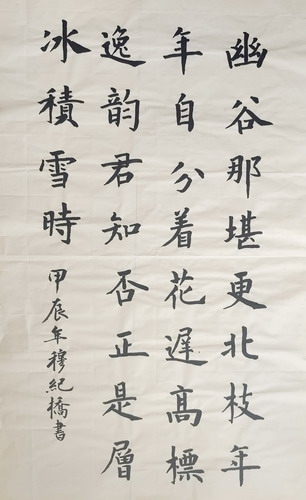 幽谷那堪更北枝年
年自分着花遲高標
逸韵君知否正是層
冰積雪時
甲辰年穆紀橋書